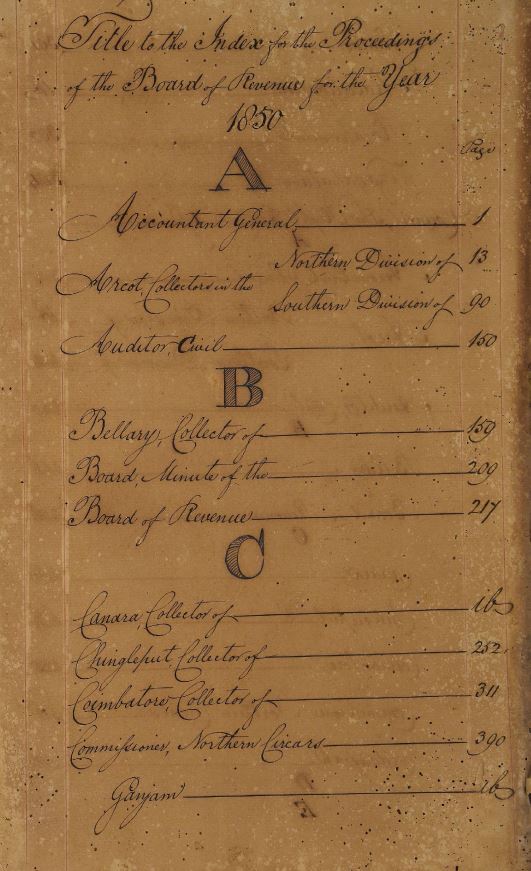 Title to the Index for the Proceedings
of the Board of Revenue for the Year
1850
Page
A
Accountant General 1
Northern Division of 13
Arcot, Collectors in the
Southern Division of 90
Auditor, Civil 150
B
Bellary, Collector of 159
Board, Minute of the 209
Board of Revenue 217
C
Canara, Collector of ib
Chingleput, Collector of 252
Coimbatore, Collector of 311
Commissioner, Northern Circars 390
Ganjam ib